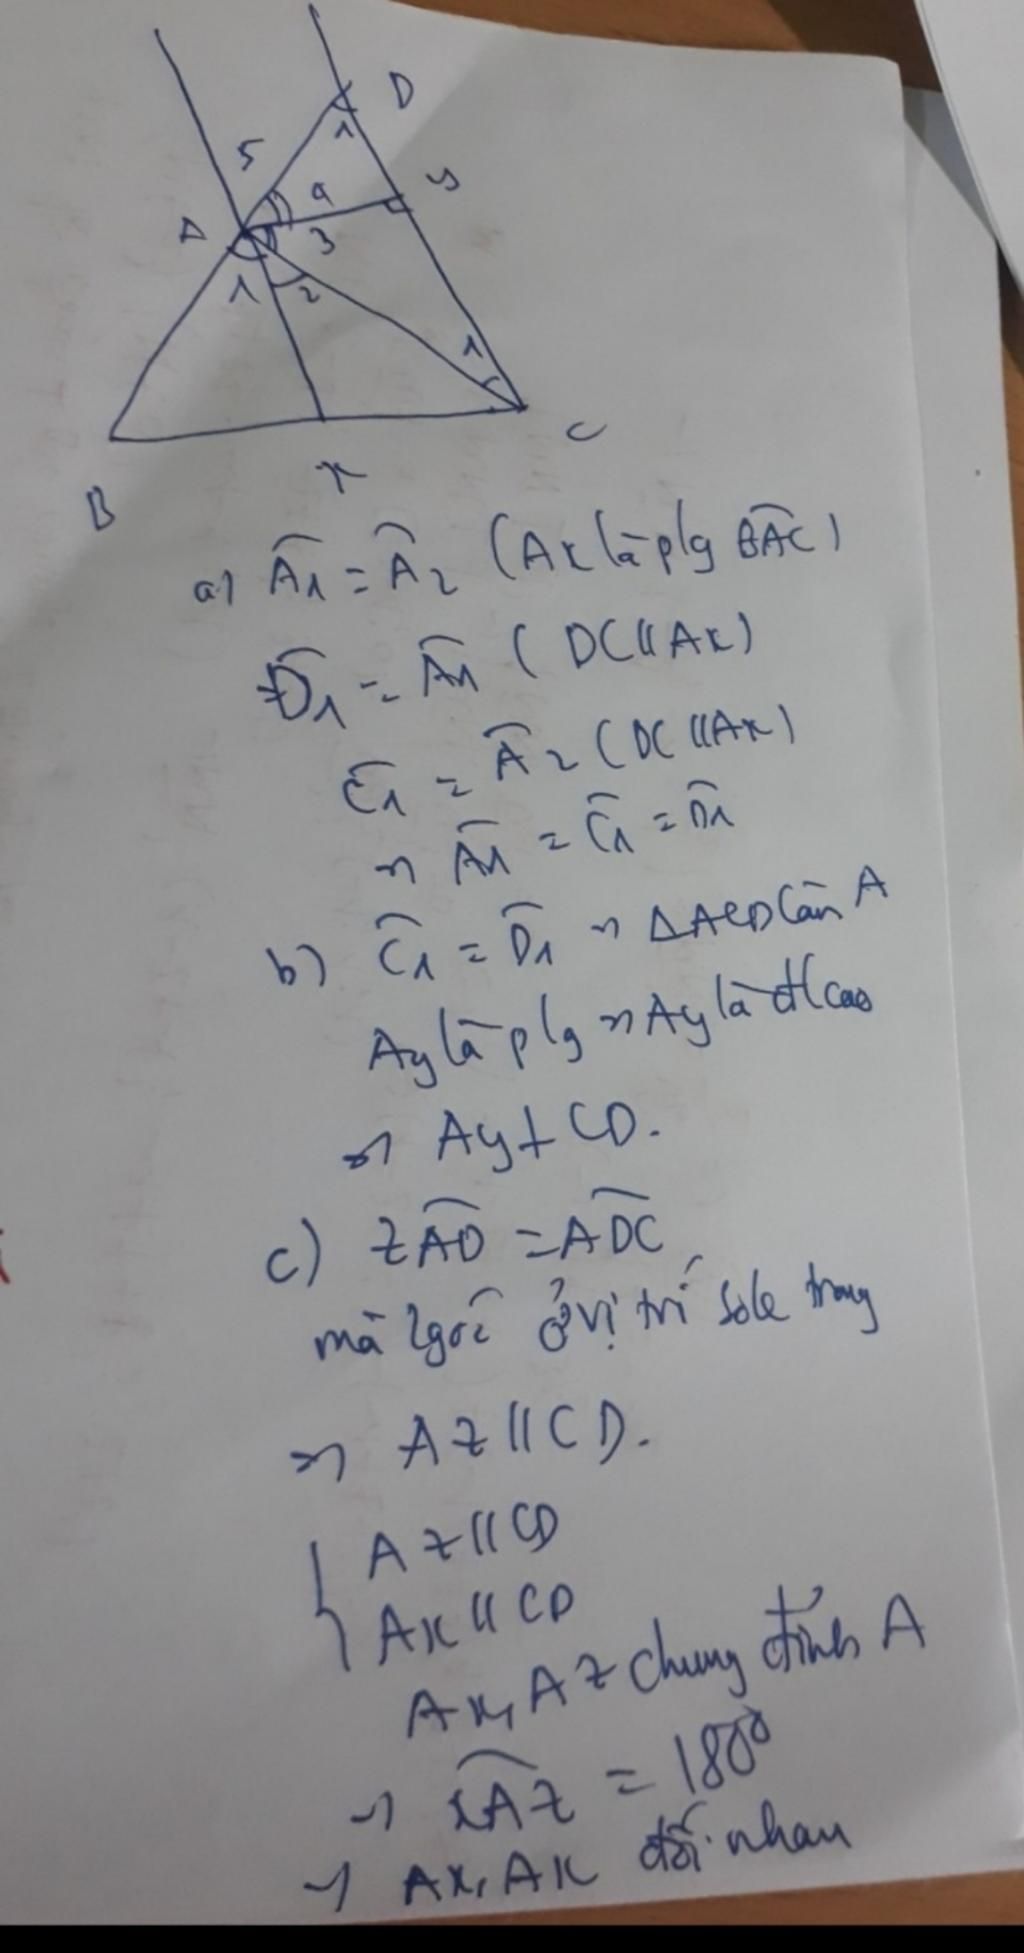 D
5
4
y
A
3
1
1
2
1
C
x
B
a) Â1 = Â2 (Ax là plg BAC)
D̂1 = Â1 (DC//Ax)
Ĉ1 = Â2 (DC//Ax)
=> Â1 = Ĉ1 = D̂1
b) Ĉ1 = D̂1 => ΔACD cân A
Ay là plg => Ay là đcao
=> Ay ⊥ CD.
c) zAD = ADC
mà 2 góc ở vị trí sole trong
=> Az // CD.
{ Az // CD
Ax // CD
Ax, Az chung đỉnh A
=> xAz = 180°
=> Ax, Ax đối nhau